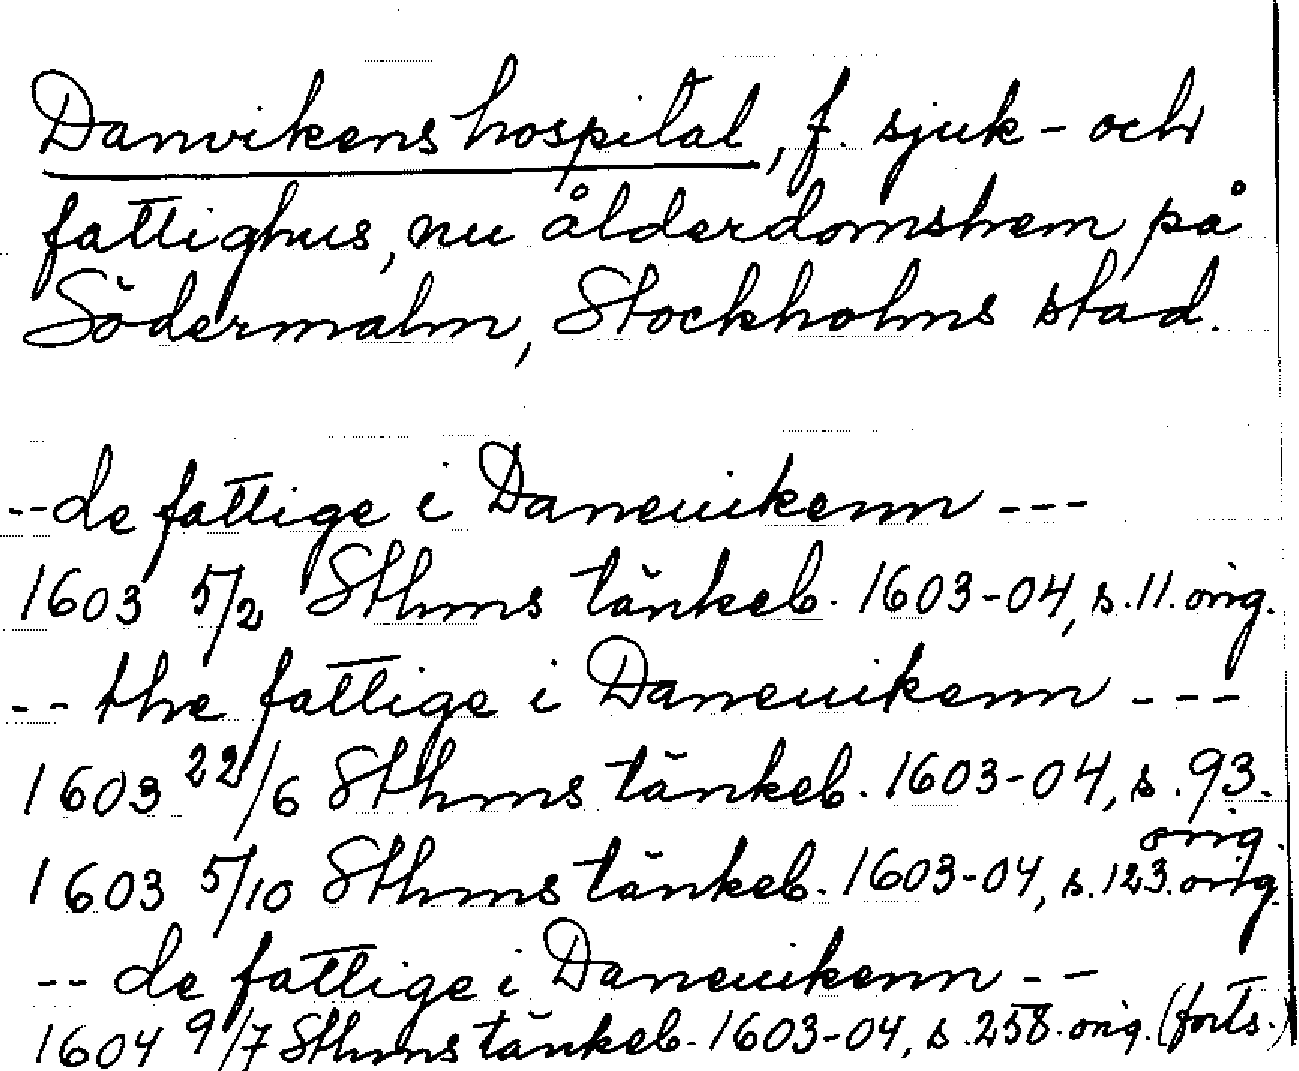 Danvikens hospital, f. sjuk- och
fattighus, nu ålderdomshem på
Södermalm, Stockholms stad.
-- de fattige i Daneuikenn ---
1603 5/2 Sthms tänkeb. 1603-04, s. 11. orig.
-- the fattige i Daneuikenn ---
1603 22/6 Sthms tänkeb. 1603-04, s. 93.
orig.
1603 5/10 Sthms tänkeb. 1603-04, s. 123. orig.
-- de fattige i Daneuikenn --
1604 9/7 Sthms tänkeb. 1603-04, s. 258. orig. (forts.)